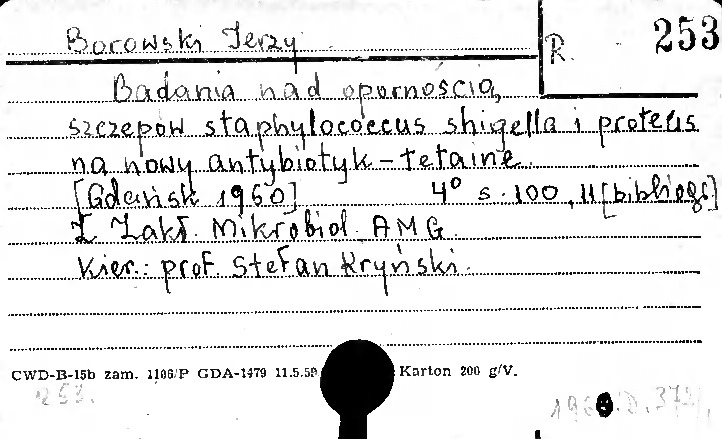 Borowski Jerzy
R. 253
Badania nad opornością
szczepów staphylococcus shigella i proteus
na nowy antybiotyk - tetainę
[Gdańsk 1960] 4° s. 100, 11 [bibliogr]
Z Zakł. Mikrobiol. AMG
Kier.: prof. Stefan Kryński.
CWD-B-15b zam. 1106/P GDA-1479 11.5.59 Karton 200 g/V.
253.